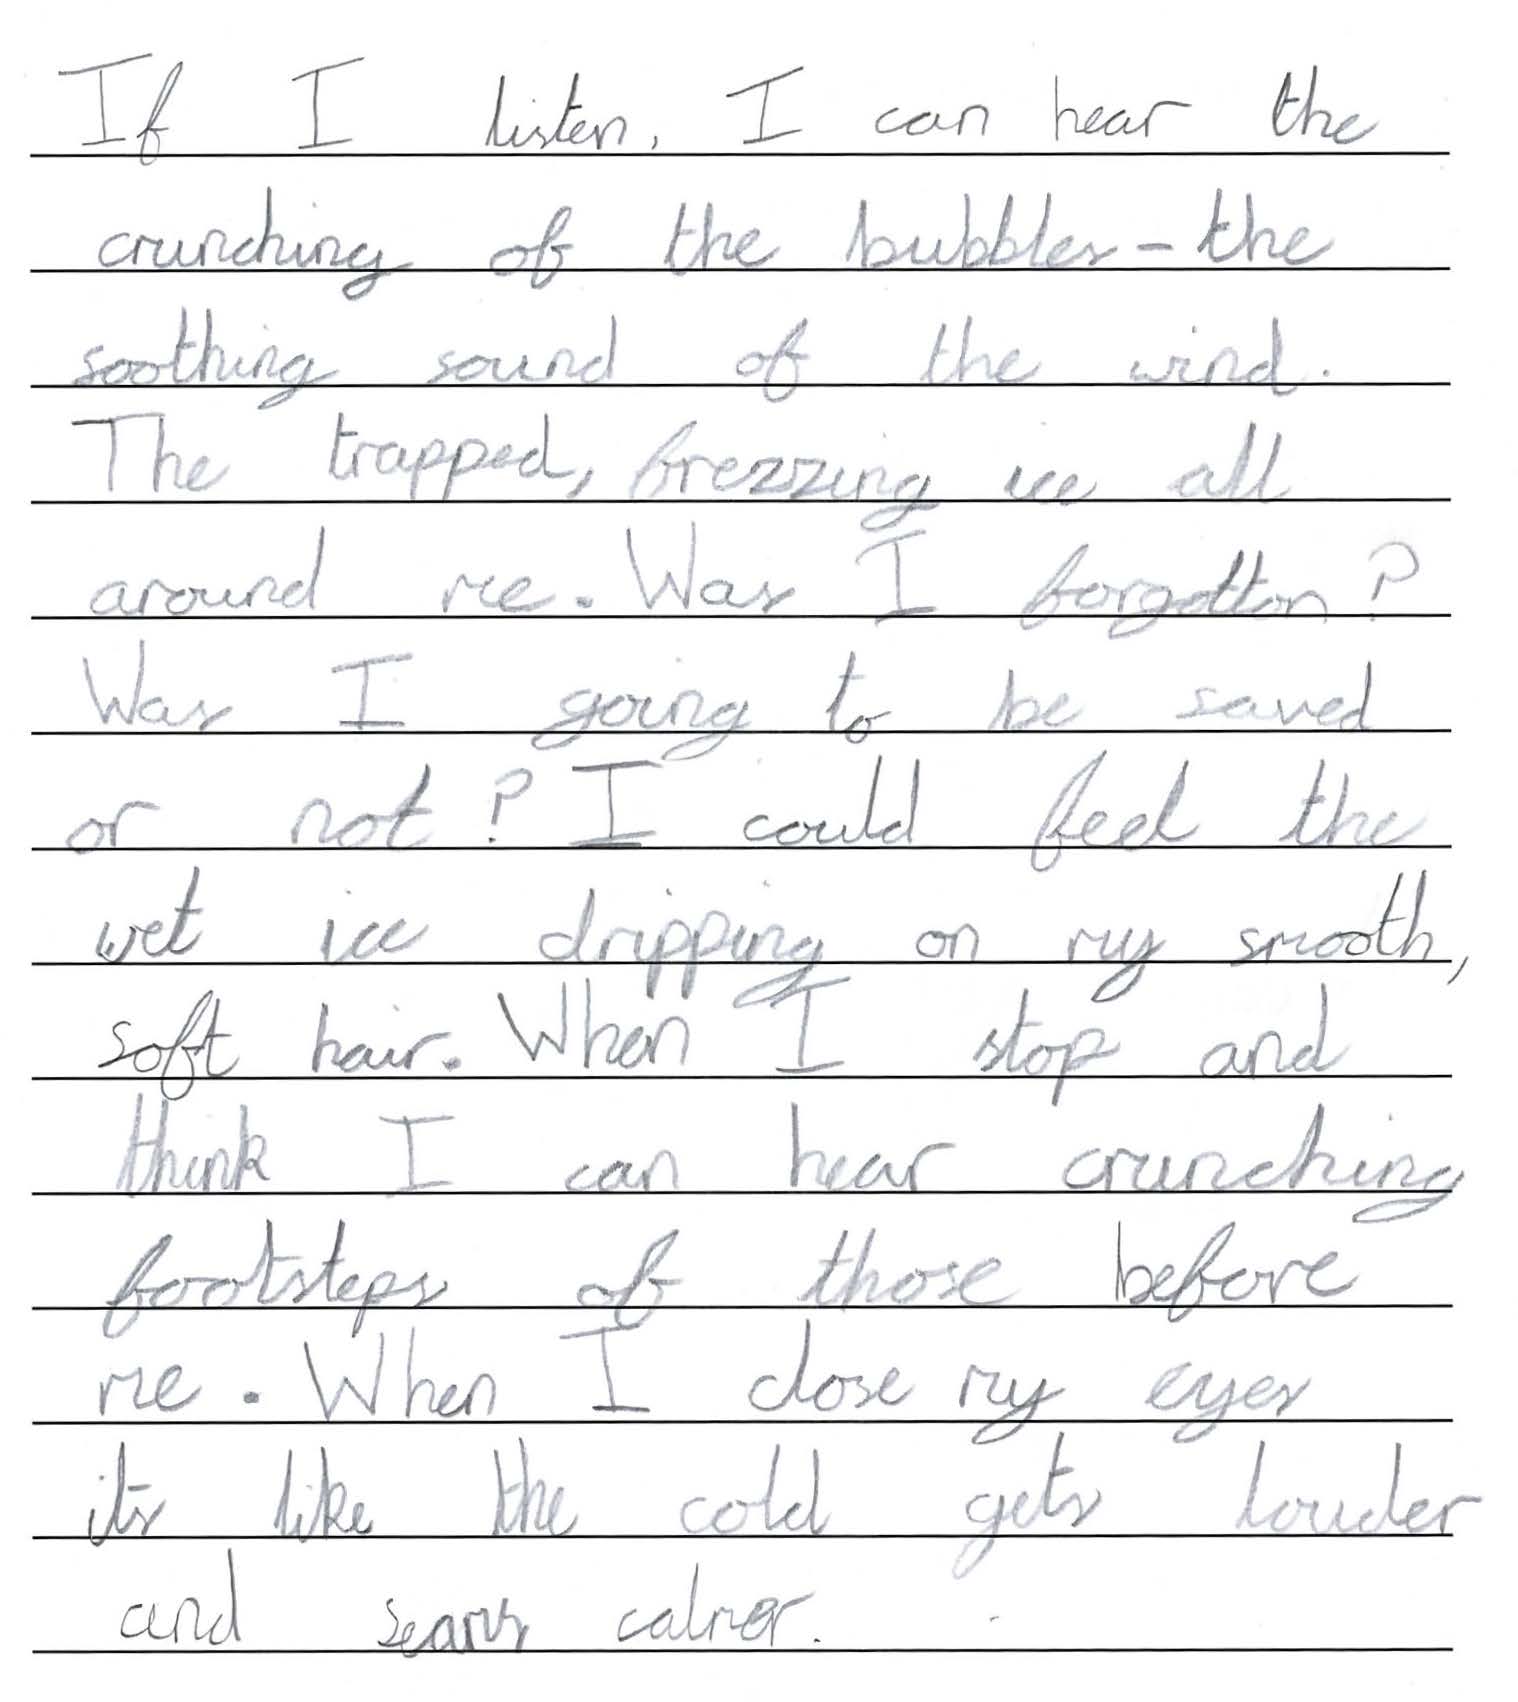 If I listen, I can hear the
crunching of the bubbles - the
soothing sound of the wind.
The trapped, frezzing ice all
around me. Was I forgotton?
Was I going to be saved
or not? I could feel the
wet ice dripping on my smooth,
soft hair. When I stop and
think I can hear crunching
footsteps of those before
me. When I close my eyes
its like the cold gets louder
and seams calmer.